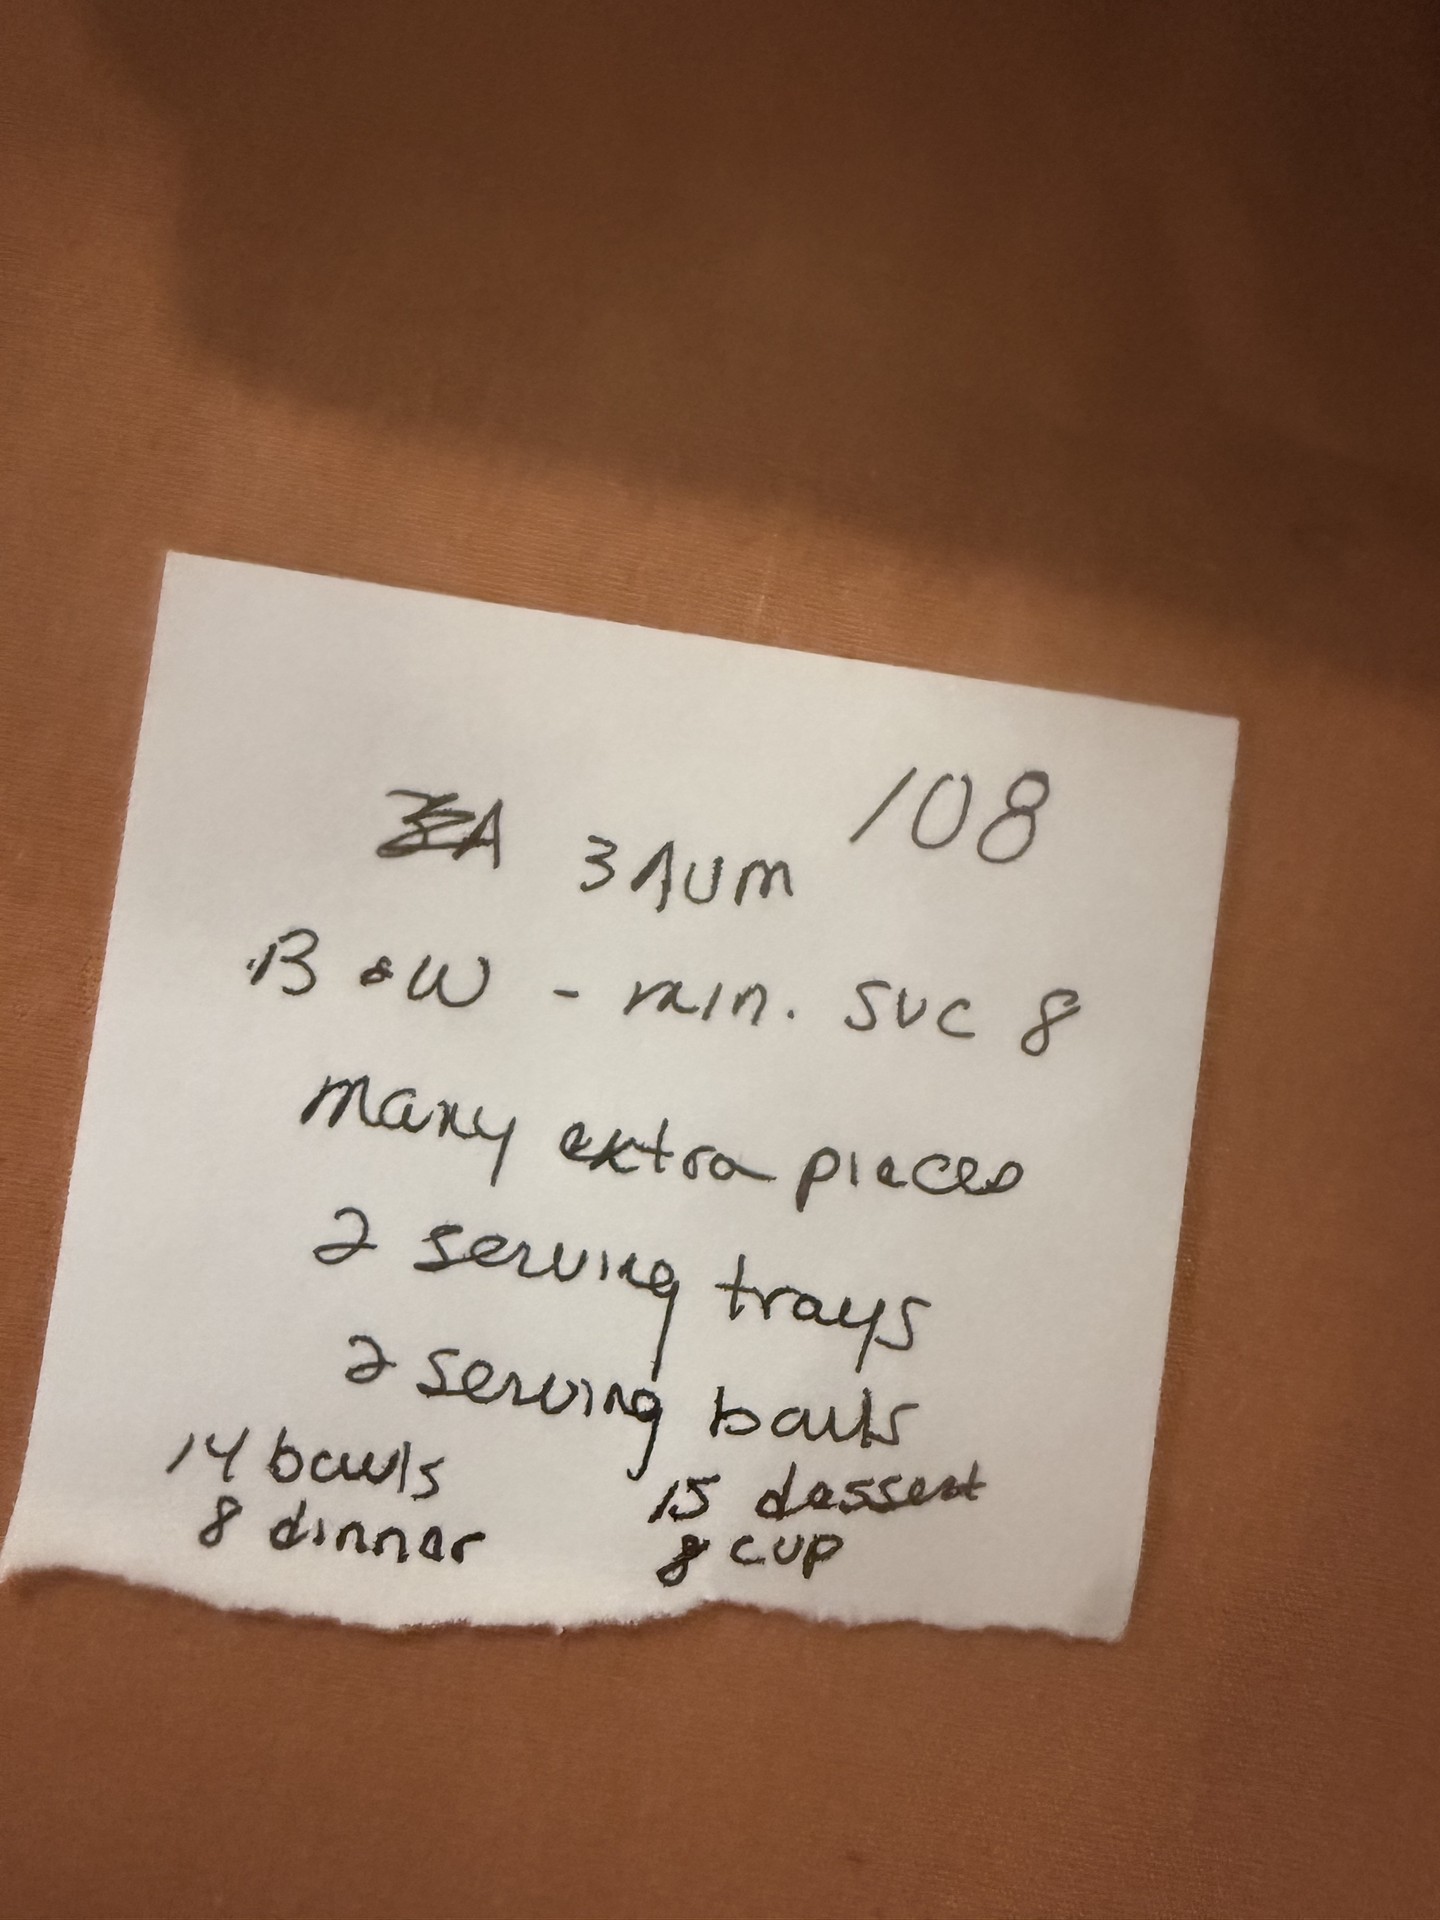 108
3 AUM
B & W - min. SVC 8
many extra pieces
2 serving trays
2 serving bowls
14 bowls
8 dinner
15 dessert
8 cup